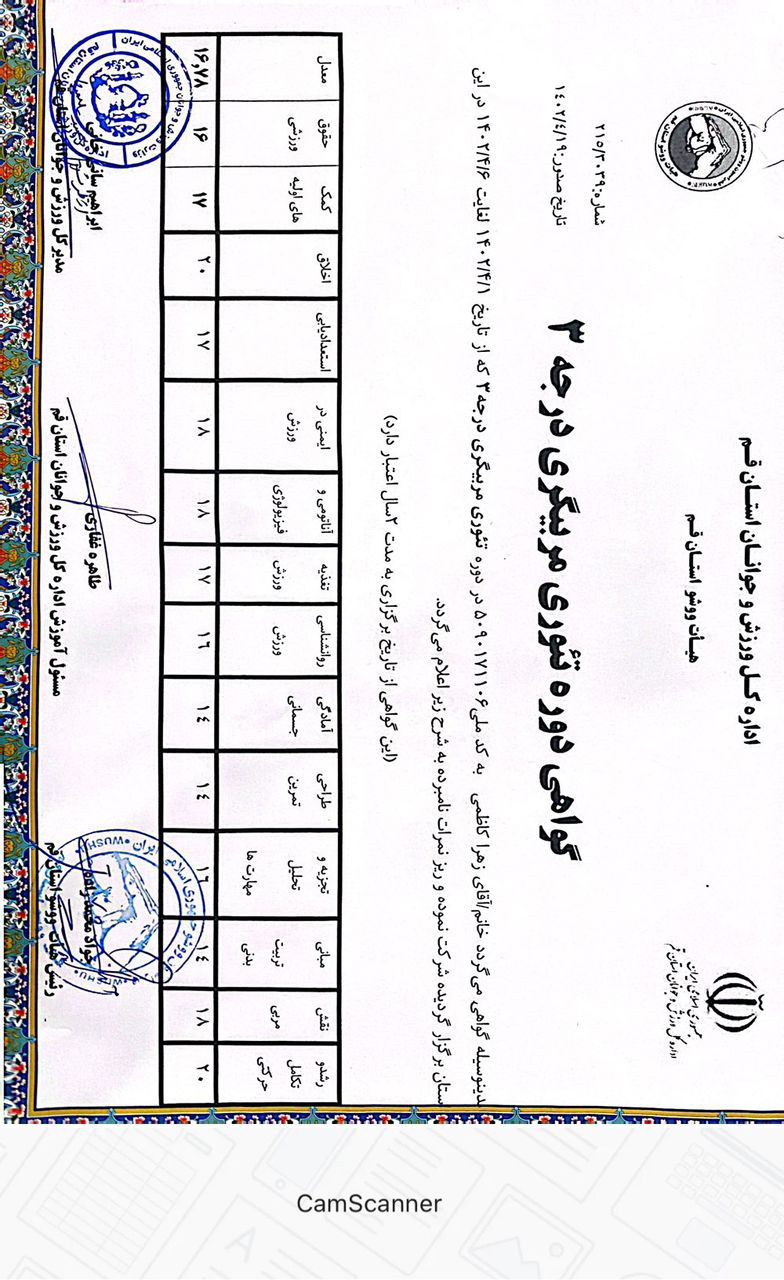 اداره کل ورزش و جوانان استان قم
هیأت ووشو استان قم
جمهوری اسلامی ایران
اداره کل ورزش و جوانان استان قم
شماره: ۲۱۵/۳۰۳۹
تاریخ صدور: ۱۴۰۲/۴/۱۹
گواهی دوره تئوری مربیگری درجه ۳
بدینوسیله گواهی می گردد خانم/آقای زهرا کاظمی به کد ملی ۵۰۹۰۱۷۱۱۰۶ در دوره تئوری مربیگری درجه ۳ که از تاریخ ۱۴۰۲/۴/۱ لغایت ۱۴۰۲/۴/۶ در این
ستان برگزار گردیده شرکت نموده و ریز نمرات نامبرده به شرح زیر اعلام می گردد.
(این گواهی از تاریخ برگزاری به مدت ۲سال اعتبار دارد)
رشدو تکامل حرکتی | نقش مربی | مبانی تربیت بدنی | تجزیه و تحلیل مهارت ها | طراحی تمرین | آمادگی جسمانی | روانشناسی ورزش | تغذیه ورزش | آناتومی و فیزیولوژی | ایمنی در ورزش | استعدادیابی | اخلاق | کمک های اولیه | حقوق ورزشی | معدل
۲۰ | ۱۸ | ۱۴ | ۱۶ | ۱۴ | ۱۴ | ۱۶ | ۱۷ | ۱۸ | ۱۸ | ۱۷ | ۲۰ | ۱۷ | ۱۶ | ۱۶,۷۸
جواد محمدزاده
رئیس هیات ووشو استان قم
طاهره غفاری
مسئول آموزش اداره کل ورزش و جوانان استان قم
ابراهیم سانی خانی
مدیر کل ورزش و جوانان استان قم
CamScanner